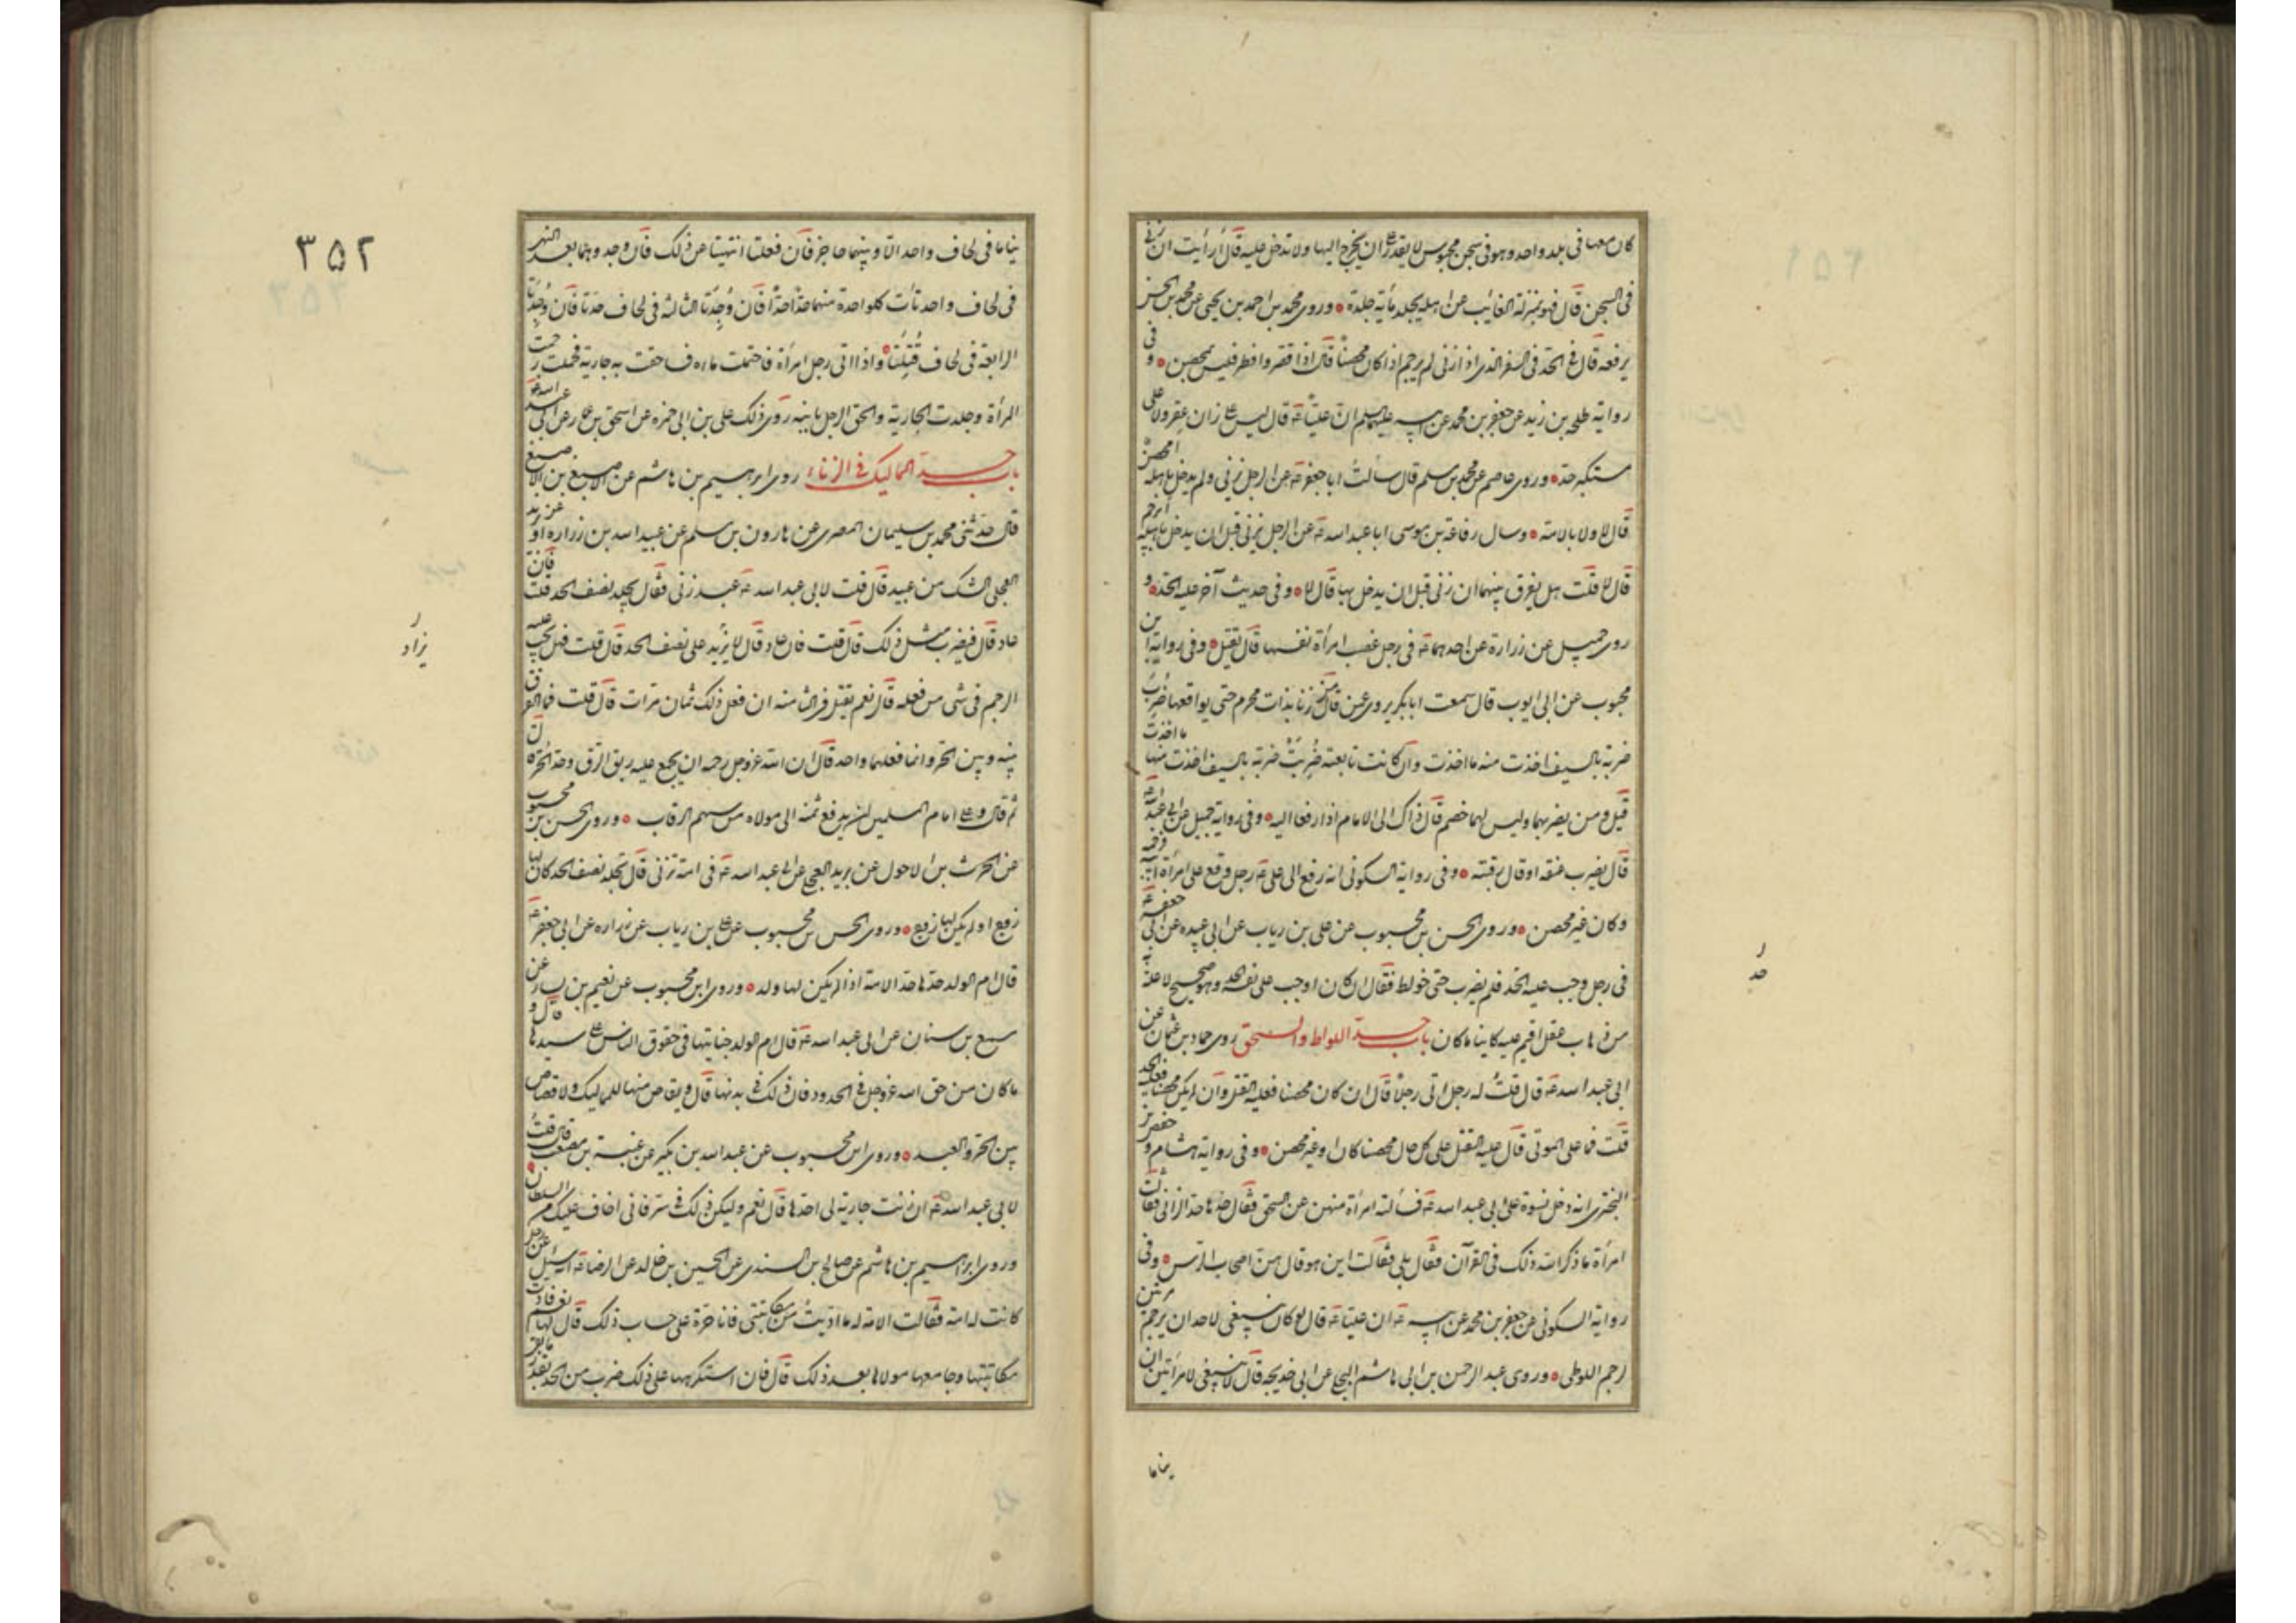 كان معها فى بلد واحد وهو فى سجن محبوس لا يقدر على ان يخرج اليها ولا تدخل عليه قال أرأيت ان زنى
فى السجن قال هو بمنزلة الغائب عن اهله يجلد مأية جلدة وروى محمد بن احمد بن يحيى عن محمد بن الحسين
يرفعه قال الحد فى السفر الذى اذا زنى لم يرجم اذا كان محصنا قال اذا قصر وافطر فليس بمحصن وفى
رواية طلحة بن زيد عن جعفر بن محمد عن ابيه عليهما السلم ان عليا ع قال ليس على زان عقر ولا على
مستكرهة حد وروى عاصم عن محمد بن مسلم قال سألت ابا جعفر ع عن الرجل يزنى ولم يدخل باهله أيحصن
قال لا ولا بالامة وسال رفاعة بن موسى ابا عبد الله ع عن الرجل يزنى قبل ان يدخل باهله أيرجم
قال لا قلت هل يفرق بينهما ان زنى قبل ان يدخل بها قال لا وفى حديث آخر عليه الحد و
روى جميل عن زرارة عن احدهما ع فى رجل غصب امرأة نفسها قال يقتل وفى رواية ابن
محبوب عن ابى ايوب قال سمعت ابا بكير يروى عن قال من زنا بذات محرم حتى يواقعها ضُرِبَ
ضربة بالسيف اخذت منه ما اخذت وان كانت تابعته ضُرِبَتْ ضربة بالسيف اخذت منها ما اخذت
قيل ومن يضربهما وليس لهما خصم قال ذاك الى الامام اذا رفعا اليه وفى رواية جميل عن ابى عبد الله ع
قال يضرب عنقه او قال رقبته وفى رواية السكونى انه رفع الى على ع رجل وقع على امرأة ابيه فرجمه
وكان غير محصن وروى الحسن بن محبوب عن على بن رياب عن ابى عبيده عن ابى جعفر ع
فى رجل وجب عليه الحد فلم يضرب حتى خولط فقال ان كان اوجب على نفسه الحد وهو صحيح لا علة به
من ذهاب عقل اقيم عليه كاينا ما كان باب حد اللواط والسحق روى حماد بن عثمان عن
ابى عبد الله ع قال قلتُ له رجل اتى رجلاً قال ان كان محصنا فعليه القتل وان لم يكن محصنا فعليه الحد
قلت فما على الموتى قال عليه القتل على كل حال محصنا كان او غير محصن وفى رواية هشام وحفص بن
البخترى انه دخل نسوة على ابى عبد الله ع فسألته امرأة منهن عن السحق فقال حدها حد الزانى فقالت
امرأة ما ذكر الله ذلك فى القرآن فقال بلى فقالت اين هو قال هن اصحاب الرس وفى
رواية السكونى عن جعفر بن محمد عن ابيه ع ان عليا ع قال لو كان ينبغى لاحد ان يرجم مرتين
لرجم اللوطى وروى عبد الرحمن بن ابى هاشم البجلى عن ابى خديجه قال لا ينبغى لامرأتين ان
يناما
حد
٣٥٢
يناما فى لحاف واحد الا وبينهما حاجز فان فعلتا انتهيتا عن ذلك فان وجدوهما بعد النهى
فى لحاف واحد كلواحدة منهما حدًّا حدًّا فان وُجِدَتا الثالثه فى لحاف حدتا فان وُجِدَتا
الرابعة فى لحاف قُتِلَتا واذا اتى رجل امرأة فاحتملت ماءه فساحقت به جارية فحملت رجمت
المرأة وجلدت الجارية والحق الولد بابيه روى ذلك على بن ابى حمزه عن اسحق بن عمار عن ابى عبد الله ع
باب حد المماليك فى الزناء روى ابراهيم بن هاشم عن الاصبغ بن الاصبغ
قال حدثنى محمد بن سليمان المصرى عن هارون بن مسلم عن عبيد الله بن زراره او عن بريد
العجلى الشك من عبيد قال قلت لابى عبد الله ع عبد زنى فقال يجلد نصف الحد قلت فان
عاد قال فيضرب مثل ذلك قال قلت فان عاد قال لا يزيد على نصف الحد قال قلت فهل يجب عليه
الرجم فى شى من فعله قال نعم يقتل فى الثامنه ان فعل ذلك ثمان مرات قال قلت فما الفرق
بينه وبين الحر وانما فعلهما واحد قال ان الله عز وجل رحمه ان يجمع عليه ربق الرق وحد الحر قال
ثم قال وعلى امام المسلمين ان يدفع ثمنه الى مولاه من سهم الرقاب وروى الحسن بن محبوب
عن الحرث بن الاحول عن بريد العجلى عن ابى عبد الله ع فى امة تزنى قال تجلد نصف الحد كان لها
زوج او لم يكن لها زوج وروى الحسن بن محبوب عن على بن رياب عن زراره عن ابى جعفر ع
قال ام الولد حدها حد الامة اذا لم يكن لها ولد وروى ابن محبوب عن نعيم بن عن
مسمع بن سنان عن ابى عبد الله ع قال ام الولد جنايتها فى حقوق الناس على سيدها قال و
ما كان من حق الله عز وجل فى الحدود فان ذلك فى بدنها قال ويقاص منها للمماليك ولا قصاص
بين الحر والعبد وروى ابن محبوب عن عبد الله بن بكير عن عنبسة بن مصعب قال قلتُ
لابى عبد الله ع ان زنت جارية لى احدها قال نعم وليكن ذلك فى ستر فانى اخاف عليك السلطان
وروى ابراهيم بن هاشم عن صالح بن السندى عن الحسين بن خالد عن الرضا ع انه سئل عن رجل
كانت له امة فقالت الامة له ما اديتُ من مكاتبتى فانا حرة على حساب ذلك قال لها نعم فادت
مكاتبتها وجامعها مولاها بعد ذلك قال فان استكرهها على ذلك ضرب من الحد بقدر
يزاد